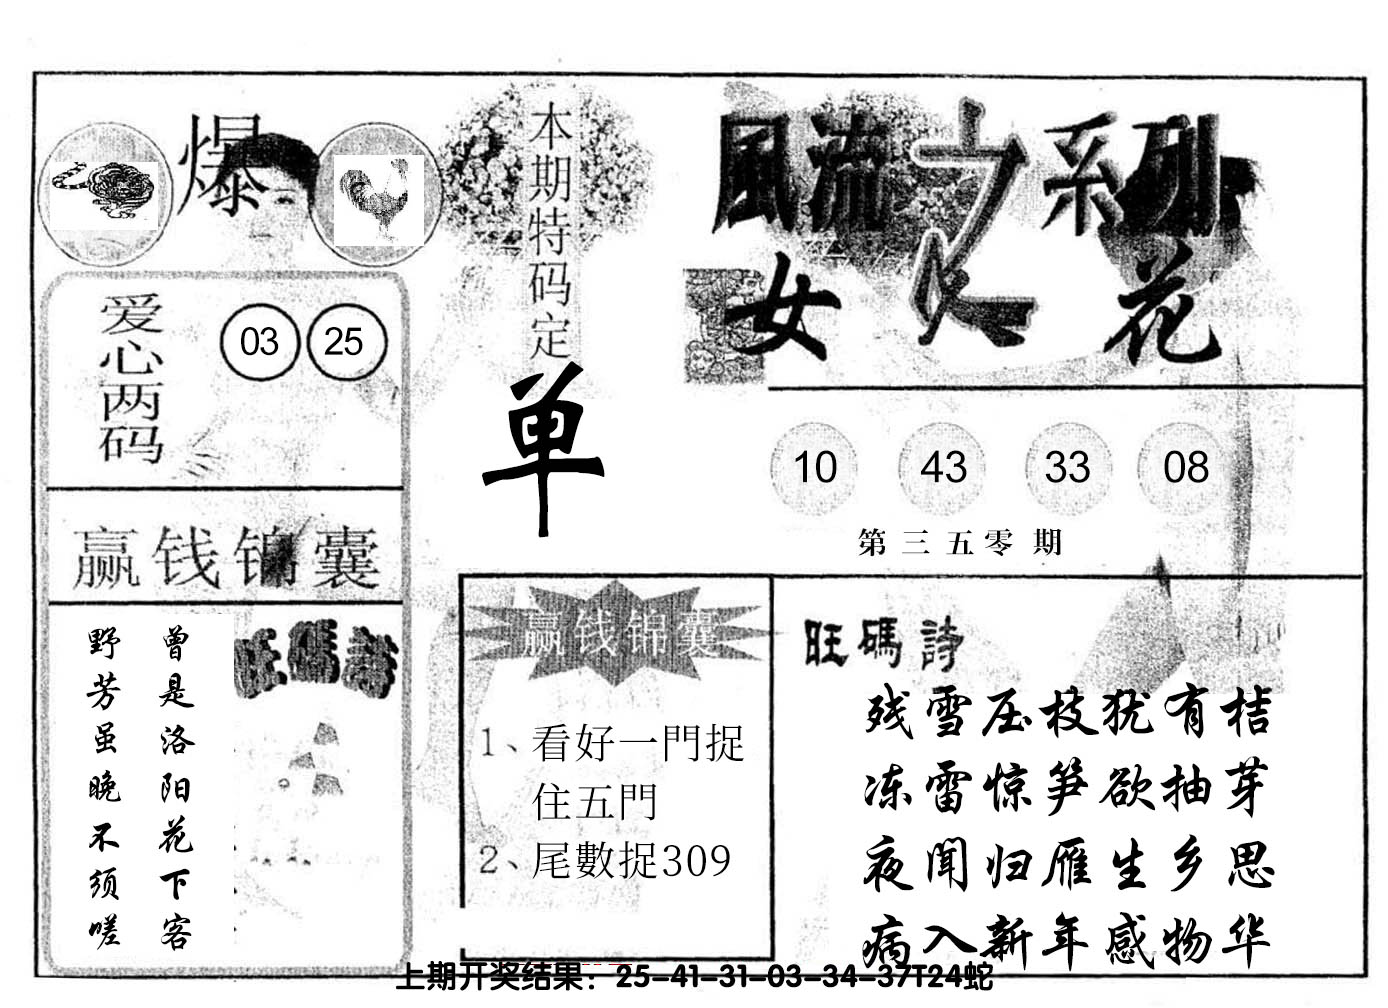 爆
本期特码定
单
風流之系列
女人花
爱心两码
03 25
10 43 33 08
第三五零期
赢钱锦囊
曾是洛阳花下客
野芳虽晚不须嗟
旺碼詩
赢钱锦囊
1、看好一門捉
住五門
2、尾數捉309
旺碼詩
残雪压枝犹有桔
冻雷惊笋欲抽芽
夜闻归雁生乡思
病入新年感物华
上期开奖结果：25-41-31-03-34-37T24蛇